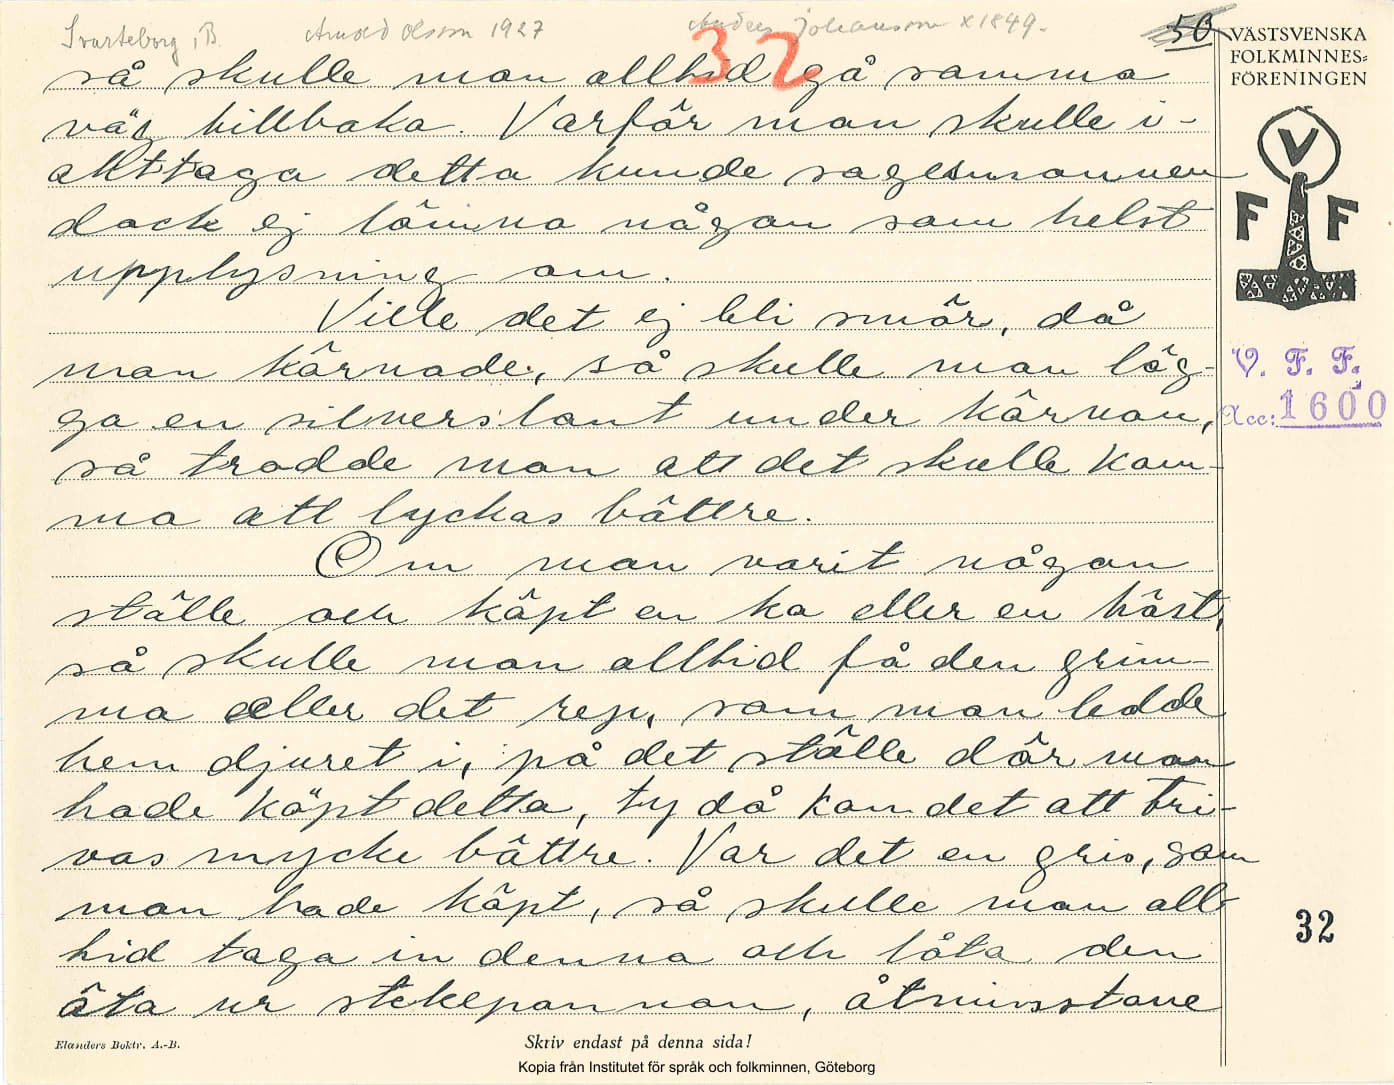 Svarteborg, B. Arnold Olsson 1927 Anders Johansson x 1849. 50
32
VÄSTSVENSKA
FOLKMINNES-
FÖRENINGEN
så skulle man alltid gå samma
väg tillbaka. Varför man skulle i-
akttaga detta kunde sagesmannen
dock ej lämna någon som helst
upplysning om.
Ville det ej bli smör, då
man kärnade, så skulle man läg-
ga en silverslant under kärnan,
så trodde man att det skulle kom-
ma att lyckas bättre.
Om man varit någon
ställe och köpt en ko eller en häst,
så skulle man alltid få den grim-
ma eller det rep, som man ledde
hem djuret i, på det ställe där man
hade köpt detta, ty då kom det att tri-
vas mycke bättre. Var det en gris, som
man hade köpt, så skulle man all-
tid taga in denna och låta den
äta ur stekepannan, åtminstone
V
F F
V. F. F.
Acc: 1600
32
Elanders Boktr. A.-B.
Skriv endast på denna sida!
Kopia från Institutet för språk och folkminnen, Göteborg